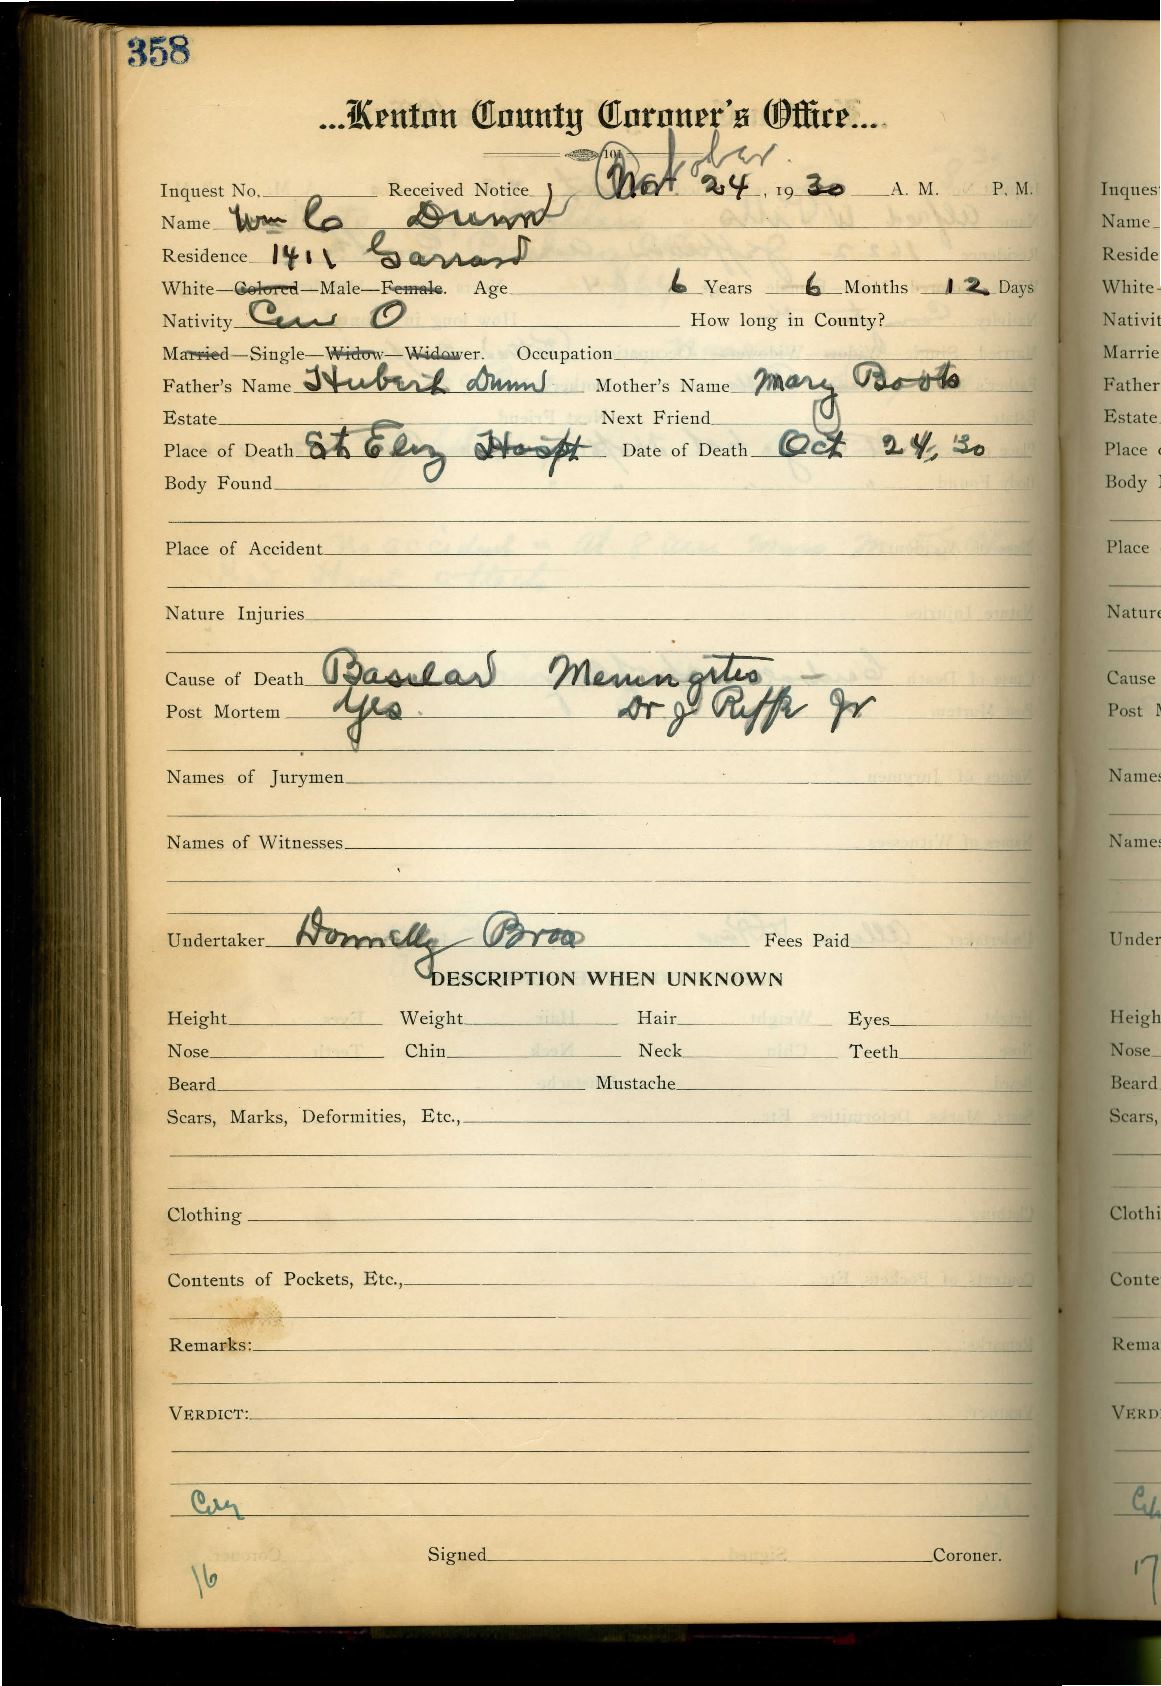 358
...Kenton County Coroner's Office...
101
Inquest No. Received Notice October 24, 1930 A. M. P. M.
Name Wm C Dunn
Residence 1411 Garrard
White—Colored—Male—Female. Age 6 Years 6 Months 12 Days
Nativity Cin O How long in County?
Married—Single—Widow—Widower. Occupation
Father's Name Hubert Dunn Mother's Name Mary Boots
Estate Next Friend
Place of Death St Eliz Hospt Date of Death Oct 24, 30
Body Found
Place of Accident
Nature Injuries
Cause of Death Basilar Meningites -
Post Mortem Yes. Dr J Riffe Jr
Names of Jurymen
Names of Witnesses
Undertaker Donnelly Bros Fees Paid
DESCRIPTION WHEN UNKNOWN
Height Weight Hair Eyes
Nose Chin Neck Teeth
Beard Mustache
Scars, Marks, Deformities, Etc.,
Clothing
Contents of Pockets, Etc.,
Remarks:
VERDICT:
City
Signed Coroner.
16
Inques
Name
Reside
White-
Nativit
Marrie
Father
Estate
Place
Body
Place
Nature
Cause
Post M
Names
Names
Under
Heigh
Nose
Beard
Scars,
Clothi
Conte
Rema
VERD
17